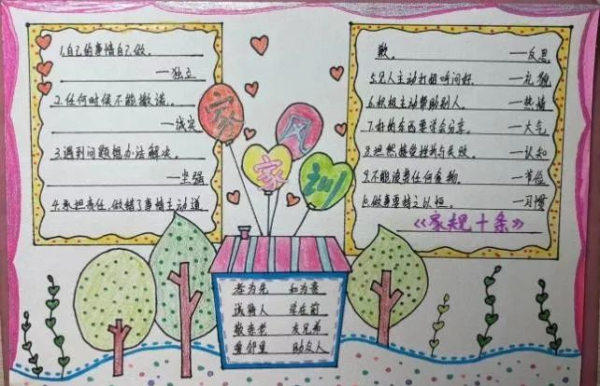 1.自己的事情自己做。
—独立
2.任何时候不能撒谎。
—诚实
3.遇到问题想办法解决。
—坚强
4.承担责任,做错了事情主动道
歉。 —反思
5.见人主动打招呼问好。 —礼貌
6.积极主动帮助别人。 —热情
7.好的东西要学会分享。 —大气
8.坦然接受挫折与失败。 —认知
9.不能浪费任何食物。 —节俭
10.做事要持之以恒。 —习惯
《家规十条》
家 风
家 训
孝为先 和为贵
诚铸人 学在前
敬老者 友兄弟
重邻里 助众人